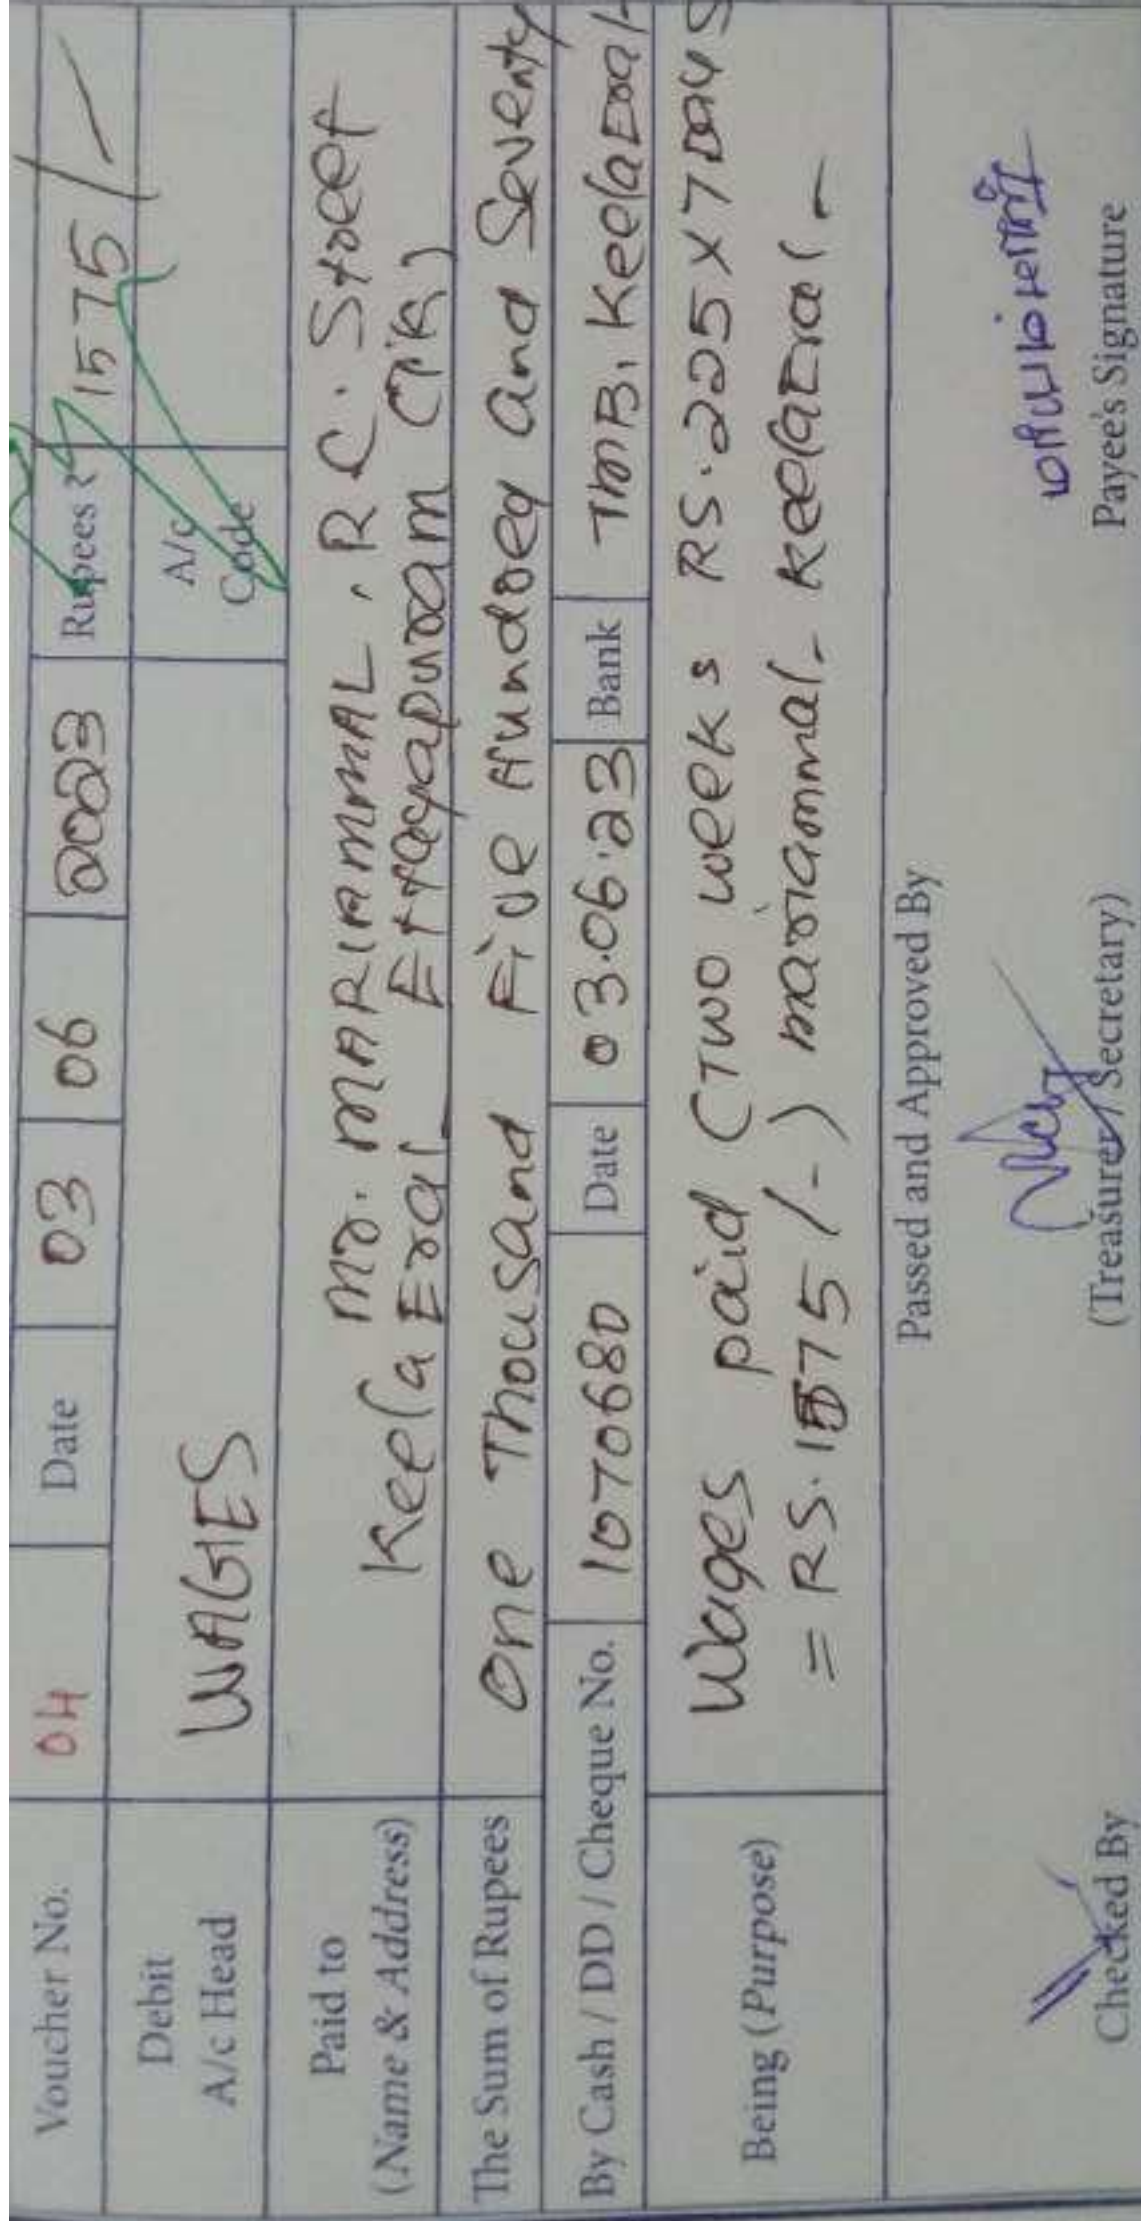 Voucher No. 04 Date 03 06 2023 Rupees ₹ 1575/-
Debit
A/c Head
WAGES
A/c
Code
Paid to
(Name & Address)
Mr. MARIAMMAL, R.C. Street
Keela Eral Ettayapuram (TK)
The Sum of Rupees One Thousand Five Hundred And Seventy
By Cash / DD / Cheque No. 107068D Date 03.06.23 Bank TMB, Keela Eral
Being (Purpose)
Wages paid (Two weeks RS. 225 X 7 Days
= RS. 1575/-) mariammal, Keela Eral -
Passed and Approved By
மாரியம்மாள்
Checked By (Treasurer / Secretary) Payee's Signature